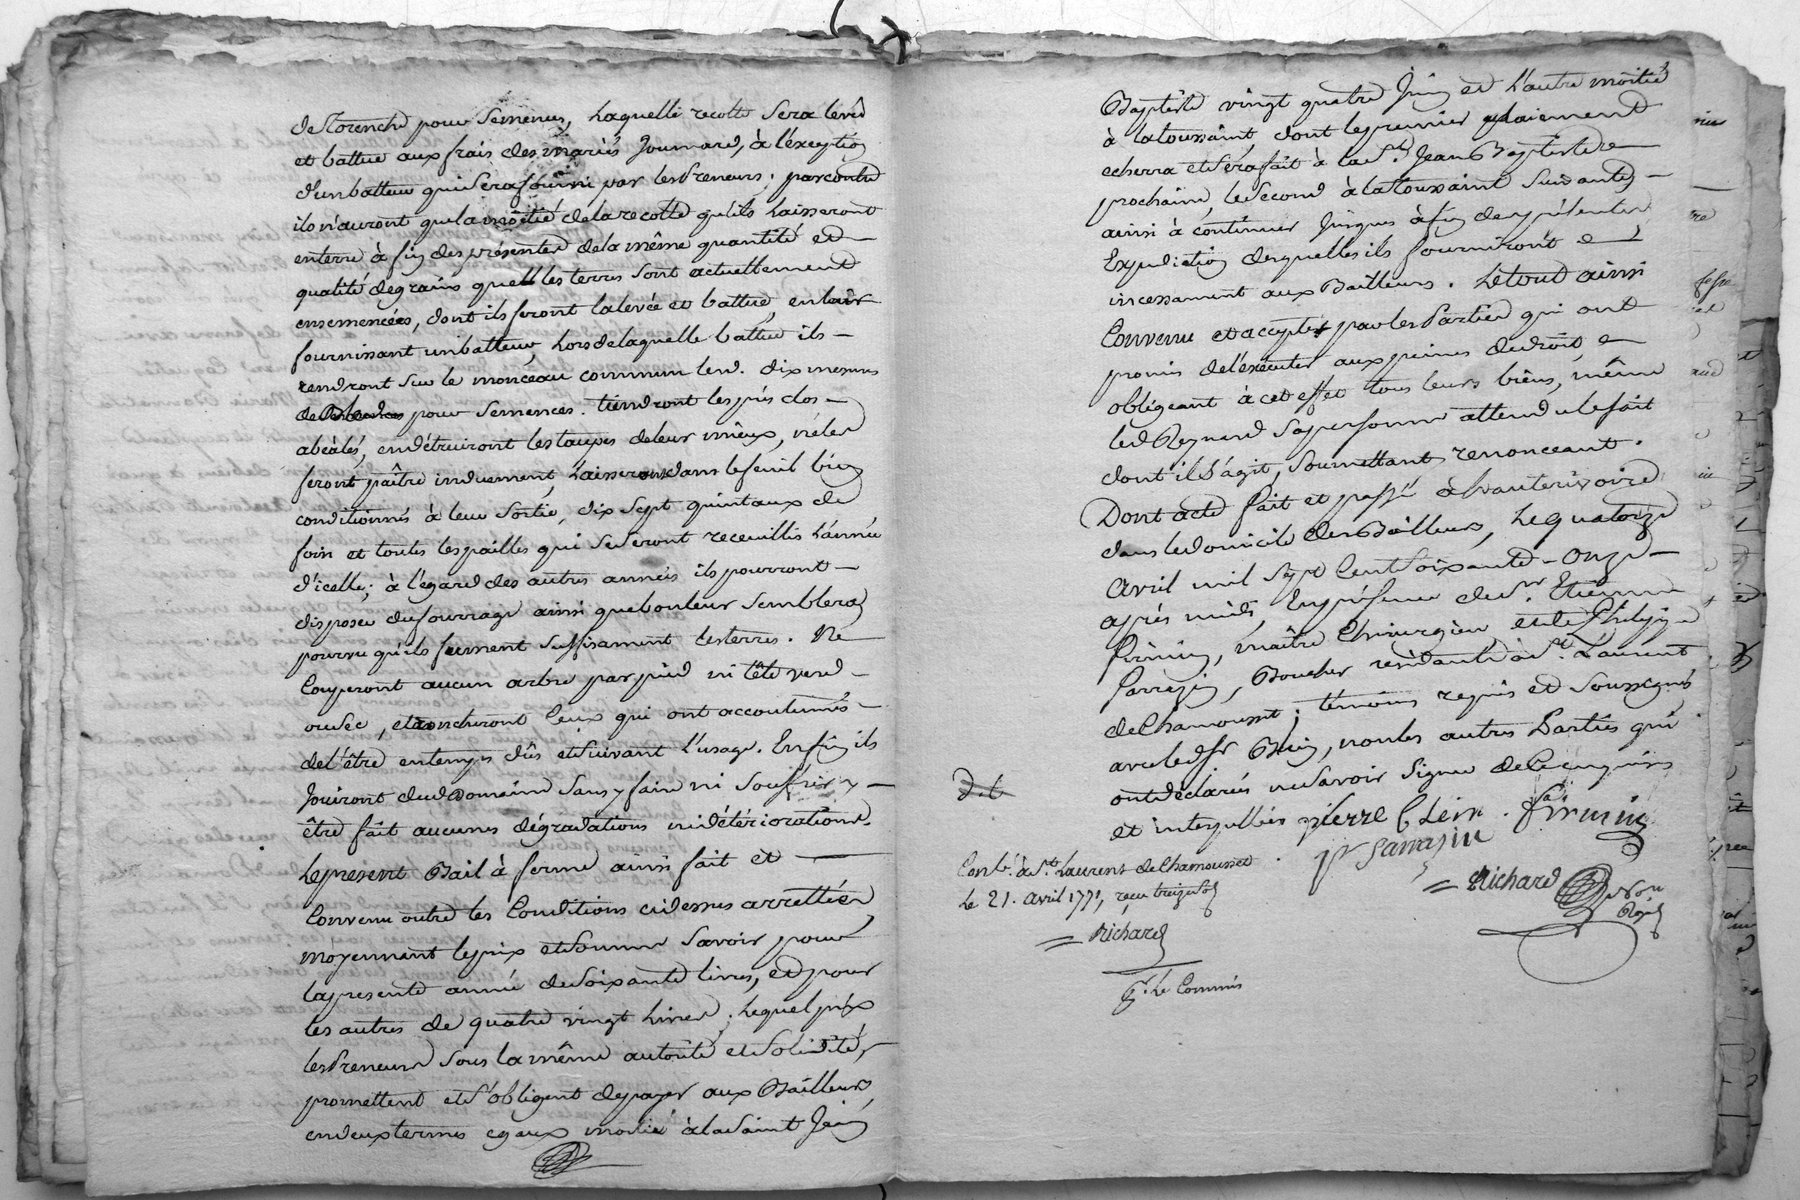 de Torenche pour Semences, Laquelle recolte Sera levée
et battue aux frais des mariés Joumard, à l'exception
d'un batteur qui Sera fourni par les Preneurs; par contre
ils n'auront que la moitié de la recolte qu'ils Laisseront
enterre à fin des présentes de la même quantité et
qualité de grains que les terres Sont actuellement
ensemencées, dont ils feront la levée et battue, en leur
fournissant un batteur, hors de laquelle battue ils
rendront sur le monceau commun lesd. dix mesures
de pour Semences. tiendront les prés clos
abéalés, en détruiront les taupes de leur mieux, n'éles
feront paître induement, Laisseront dans le fenil bien
conditionnés à leur Sortie, dix Sept quintaux de
foin et toutes les pailles qui Seseront receuillis L'année
d'icelle; à l'égard des autres années ils pourront
disposer du fourrage ainsi que bon leur Semblera
pourvu qu'ils fument Suffisament les terres. Ne
Couperont aucun arbre par pied ni tête verd
ou Sec, et ebrancheront Ceux qui ont accoutumés
de l'être en temps dûs et Suivant l'usage. Enfin ils
Jouiront dud Domaine Sans y faire ni Souffrir y
être fait aucunes dégradations ni détériorations.
Le present Bail à ferme ainsi fait et
Convenu outre les Conditions cidessus arrettées
moyennant le prix et Somme Savoir pour
la presente année de Soixante livres, et pour
les autres de quatre vingt Livres; Lequel prix
les Preneurs Sous la même autorité et Solidité,
promettent et S'obligent de payer aux Bailleurs,
en deux termes egaux moitié à la Saint Jean
Baptiste vingt quatre Juin et L'autre moitié
à la toussaint, dont le premier paiement
echerra et Sera fait à la St. Jean Baptiste
prochaine, le Second à la toussaint Suivante,
ainsi à continuer Jusques à fin des présentes
Expedition desquelles ils fourniront
incessament aux Bailleurs. Le tout ainsi
Convenu et accepté par les Parties qui ont
promis de l'executer aux peines de droit,
obligeant à cet effet tous leurs biens, même
led Reynard Sa personne attendu le fait
dont il S'agit, Soumettant, renonceant.
Dont acte fait et passé à
dans le domicile des Bailleurs, Le quatorze
Avril mil Sept Cent Soixante-Onze
après midi, En présence de Sr. Etienne
Firmin, maître Chirurgien et de Philippe
Sarrazin, Boucher residants à St. Laurent
de Chamousset; témoins requis et Soussignés
avec led Sr Blein, non les autres Parties qui
ont déclarés ne Savoir Signer de Ce enquis
et interpellés pierre blein. Firmin
pe Sarrasin
Richard
Conlé. à St. Laurent de Chamousset
le 21. avril 1771, reçu treize Sols
Richard
pr. Le Commis